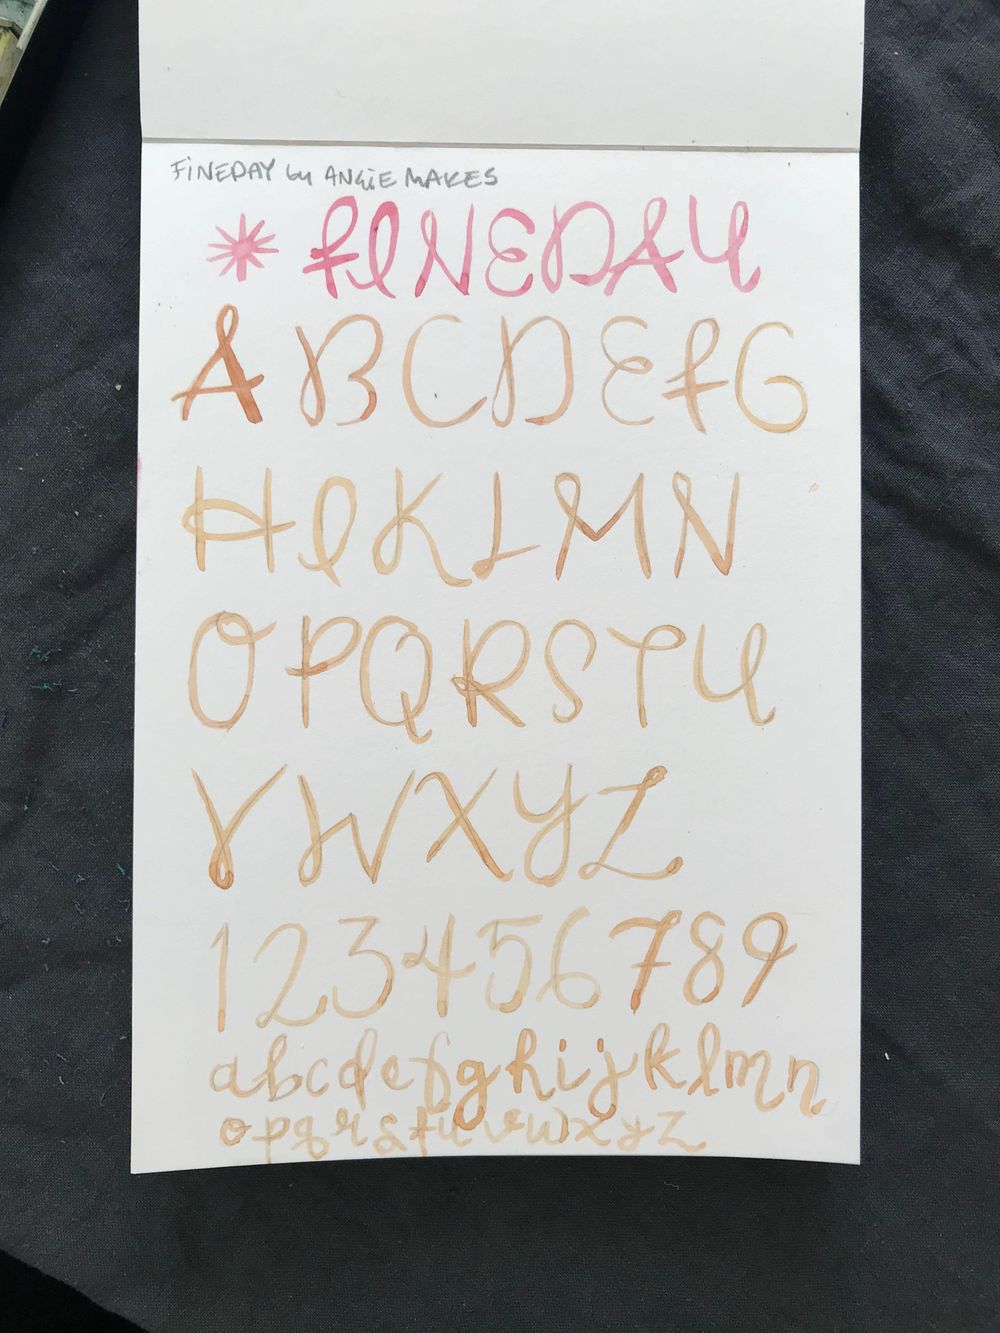 FINEDAY by ANGIE MAKES
* FINEDAY
A B C D E F G
H I K L M N
O P Q R S T U
V W X Y Z
1 2 3 4 5 6 7 8 9
a b c d e f g h i j k l m n
o p q r s t u v w x y z